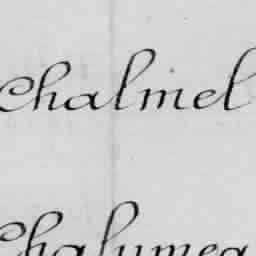 Chalmel
Chalumea